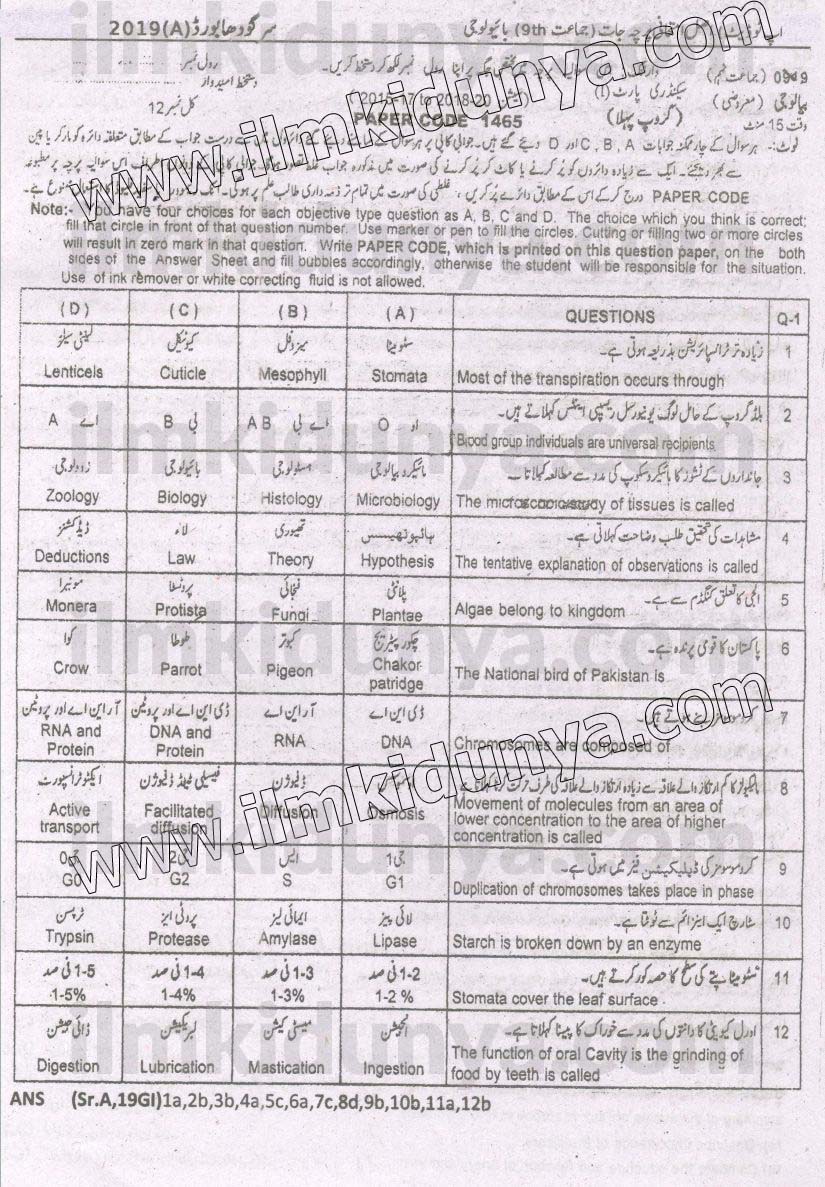 سرگودھا بورڈ 2019(A)
(جماعت 9th) بائیولوجی
رول نمبر
0919 (جماعت نہم)
دستخط امیدوار
سیکنڈری پارٹ (I)
(سیشن 2015-17 to 2018-20)
بیالوجی (معروضی) (گروپ پہلا) PAPER CODE 1465 کل نمبر 12
وقت 15 منٹ
نوٹ:- ہر سوال کے چار ممکنہ جوابات A , B , C اور D دیئے گئے ہیں۔ جوابی کاپی پر ہر سوال کے درست جواب کے مطابق متعلقہ دائرہ کو مارکر یا پین
سے بھر دیجئے۔ ایک سے زیادہ دائروں کو پُر کرنے یا کاٹ کر پُر کرنے کی صورت میں مذکورہ جواب غلط سوالیہ پرچہ پر مطبوعہ
PAPER CODE درج کر کے اس کے مطابق دائرے پُر کریں، غلطی کی صورت میں تمام تر ذمہ داری طالب علم پر ہوگی۔ ممنوع ہے۔
Note:- You have four choices for each objective type question as A, B, C and D. The choice which you think is correct;
fill that circle in front of that question number. Use marker or pen to fill the circles. Cutting or filling two or more circles
will result in zero mark in that question. Write PAPER CODE, which is printed on this question paper, on the both
sides of the Answer Sheet and fill bubbles accordingly, otherwise the student will be responsible for the situation.
Use of ink remover or white correcting fluid is not allowed.
( D ) ( C ) ( B ) ( A ) QUESTIONS Q-1
لینٹی سیلز کیوٹیکل میزوفل سٹومیٹا زیادہ تر ٹرانسپائریشن بذریعہ ہوتی ہے۔ 1
Lenticels Cuticle Mesophyll Stomata Most of the transpiration occurs through
A اے B بی AB اے بی O او بلڈ گروپ کے حامل لوگ یونیورسل ریسیپی اینٹس کہلاتے ہیں۔ 2
Blood group individuals are universal recipients
زوولوجی بائیولوجی ہسٹولوجی مائیکروبیالوجی جانداروں کے ٹشوز کا مائیکروسکوپ کی مدد سے مطالعہ کہلاتا۔ 3
Zoology Biology Histology Microbiology The microscopic study of tissues is called
ڈیڈکشنز لاء تھیوری ہائپوتھیسس مشاہدات کی تحقیق طلب وضاحت کہلاتی ہے۔ 4
Deductions Law Theory Hypothesis The tentative explanation of observations is called
مونیرا پروٹسٹا فنجائی پلانٹی الجی کا تعلق کنگڈم سے ہے۔ 5
Monera Protista Fungi Plantae Algae belong to kingdom
کوا طوطا کبوتر چکور پیٹریج پاکستان کا قومی پرندہ ہے۔ 6
Crow Parrot Pigeon Chakor patridge The National bird of Pakistan is
آر این اے اور پروٹین ڈی این اے اور پروٹین آر این اے ڈی این اے 7
RNA and Protein DNA and Protein RNA DNA Chromosomes are composed of
ایکٹو ٹرانسپورٹ فیسیلی ٹیٹڈ ڈفیوژن ڈفیوژن اوسموسس مالیکیولز کا کم ارتکاز والے علاقہ سے زیادہ ارتکاز والے علاقہ کی طرف حرکت کرنا کہلاتا ہے 8
Active transport Facilitated diffusion Diffusion Osmosis Movement of molecules from an area of
lower concentration to the area of higher
concentration is called
جی0 جی2 ایس جی1 کروموسومز کی ڈپلیکیشن فیز میں ہوتی ہے۔ 9
G0 G2 S G1 Duplication of chromosomes takes place in phase
ٹرپسن پروٹی ایز ایمائی لیز لائی پیز سٹارچ ایک اینزائم سے ٹوٹتا ہے۔ 10
Trypsin Protease Amylase Lipase Starch is broken down by an enzyme
1-5 فی صد 1-4 فی صد 1-3 فی صد 1-2 فی صد سٹومیٹا پتے کی سطح کا حصہ کور کرتے ہیں۔ 11
1-5% 1-4% 1-3% 1-2 % Stomata cover the leaf surface
ڈائی جیشن لبریکیشن میسٹی کیشن انجیشن اورل کیویٹی کا دانتوں کی مدد سے خوراک کا پیسنا کہلاتا ہے۔ 12
Digestion Lubrication Mastication Ingestion The function of oral Cavity is the grinding of
food by teeth is called
ANS (Sr.A,19GI)1a,2b,3b,4a,5c,6a,7c,8d,9b,10b,11a,12b
www.ilmkidunya.com
www.ilmkidunya.com
ilmkidunya.com
ilmkidunya.com
ilmkidunya.com
ilmkidunya.com
ilmkidunya.com